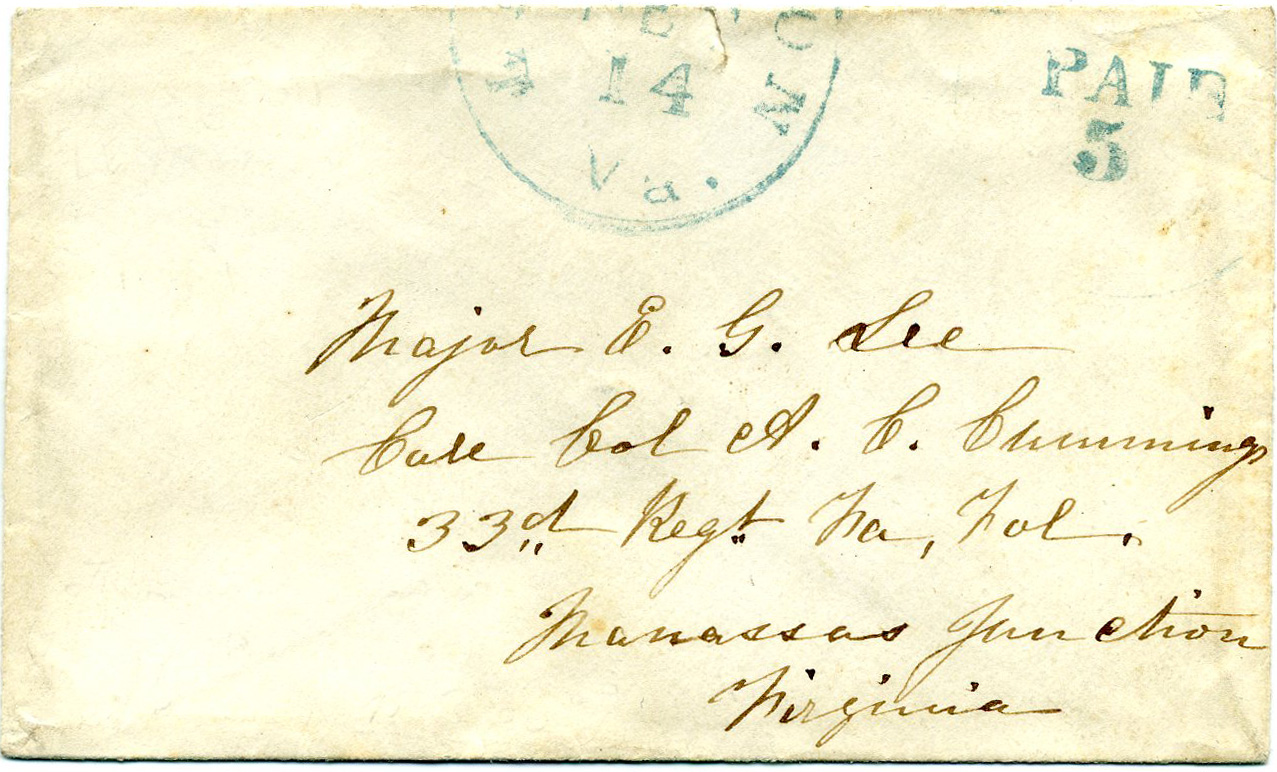 14
Va.
PAID
5
Major E. G. Lee
Care Col A. C. Cummings
33d Regt Va, Vol.
Manassas Junction
Virginia